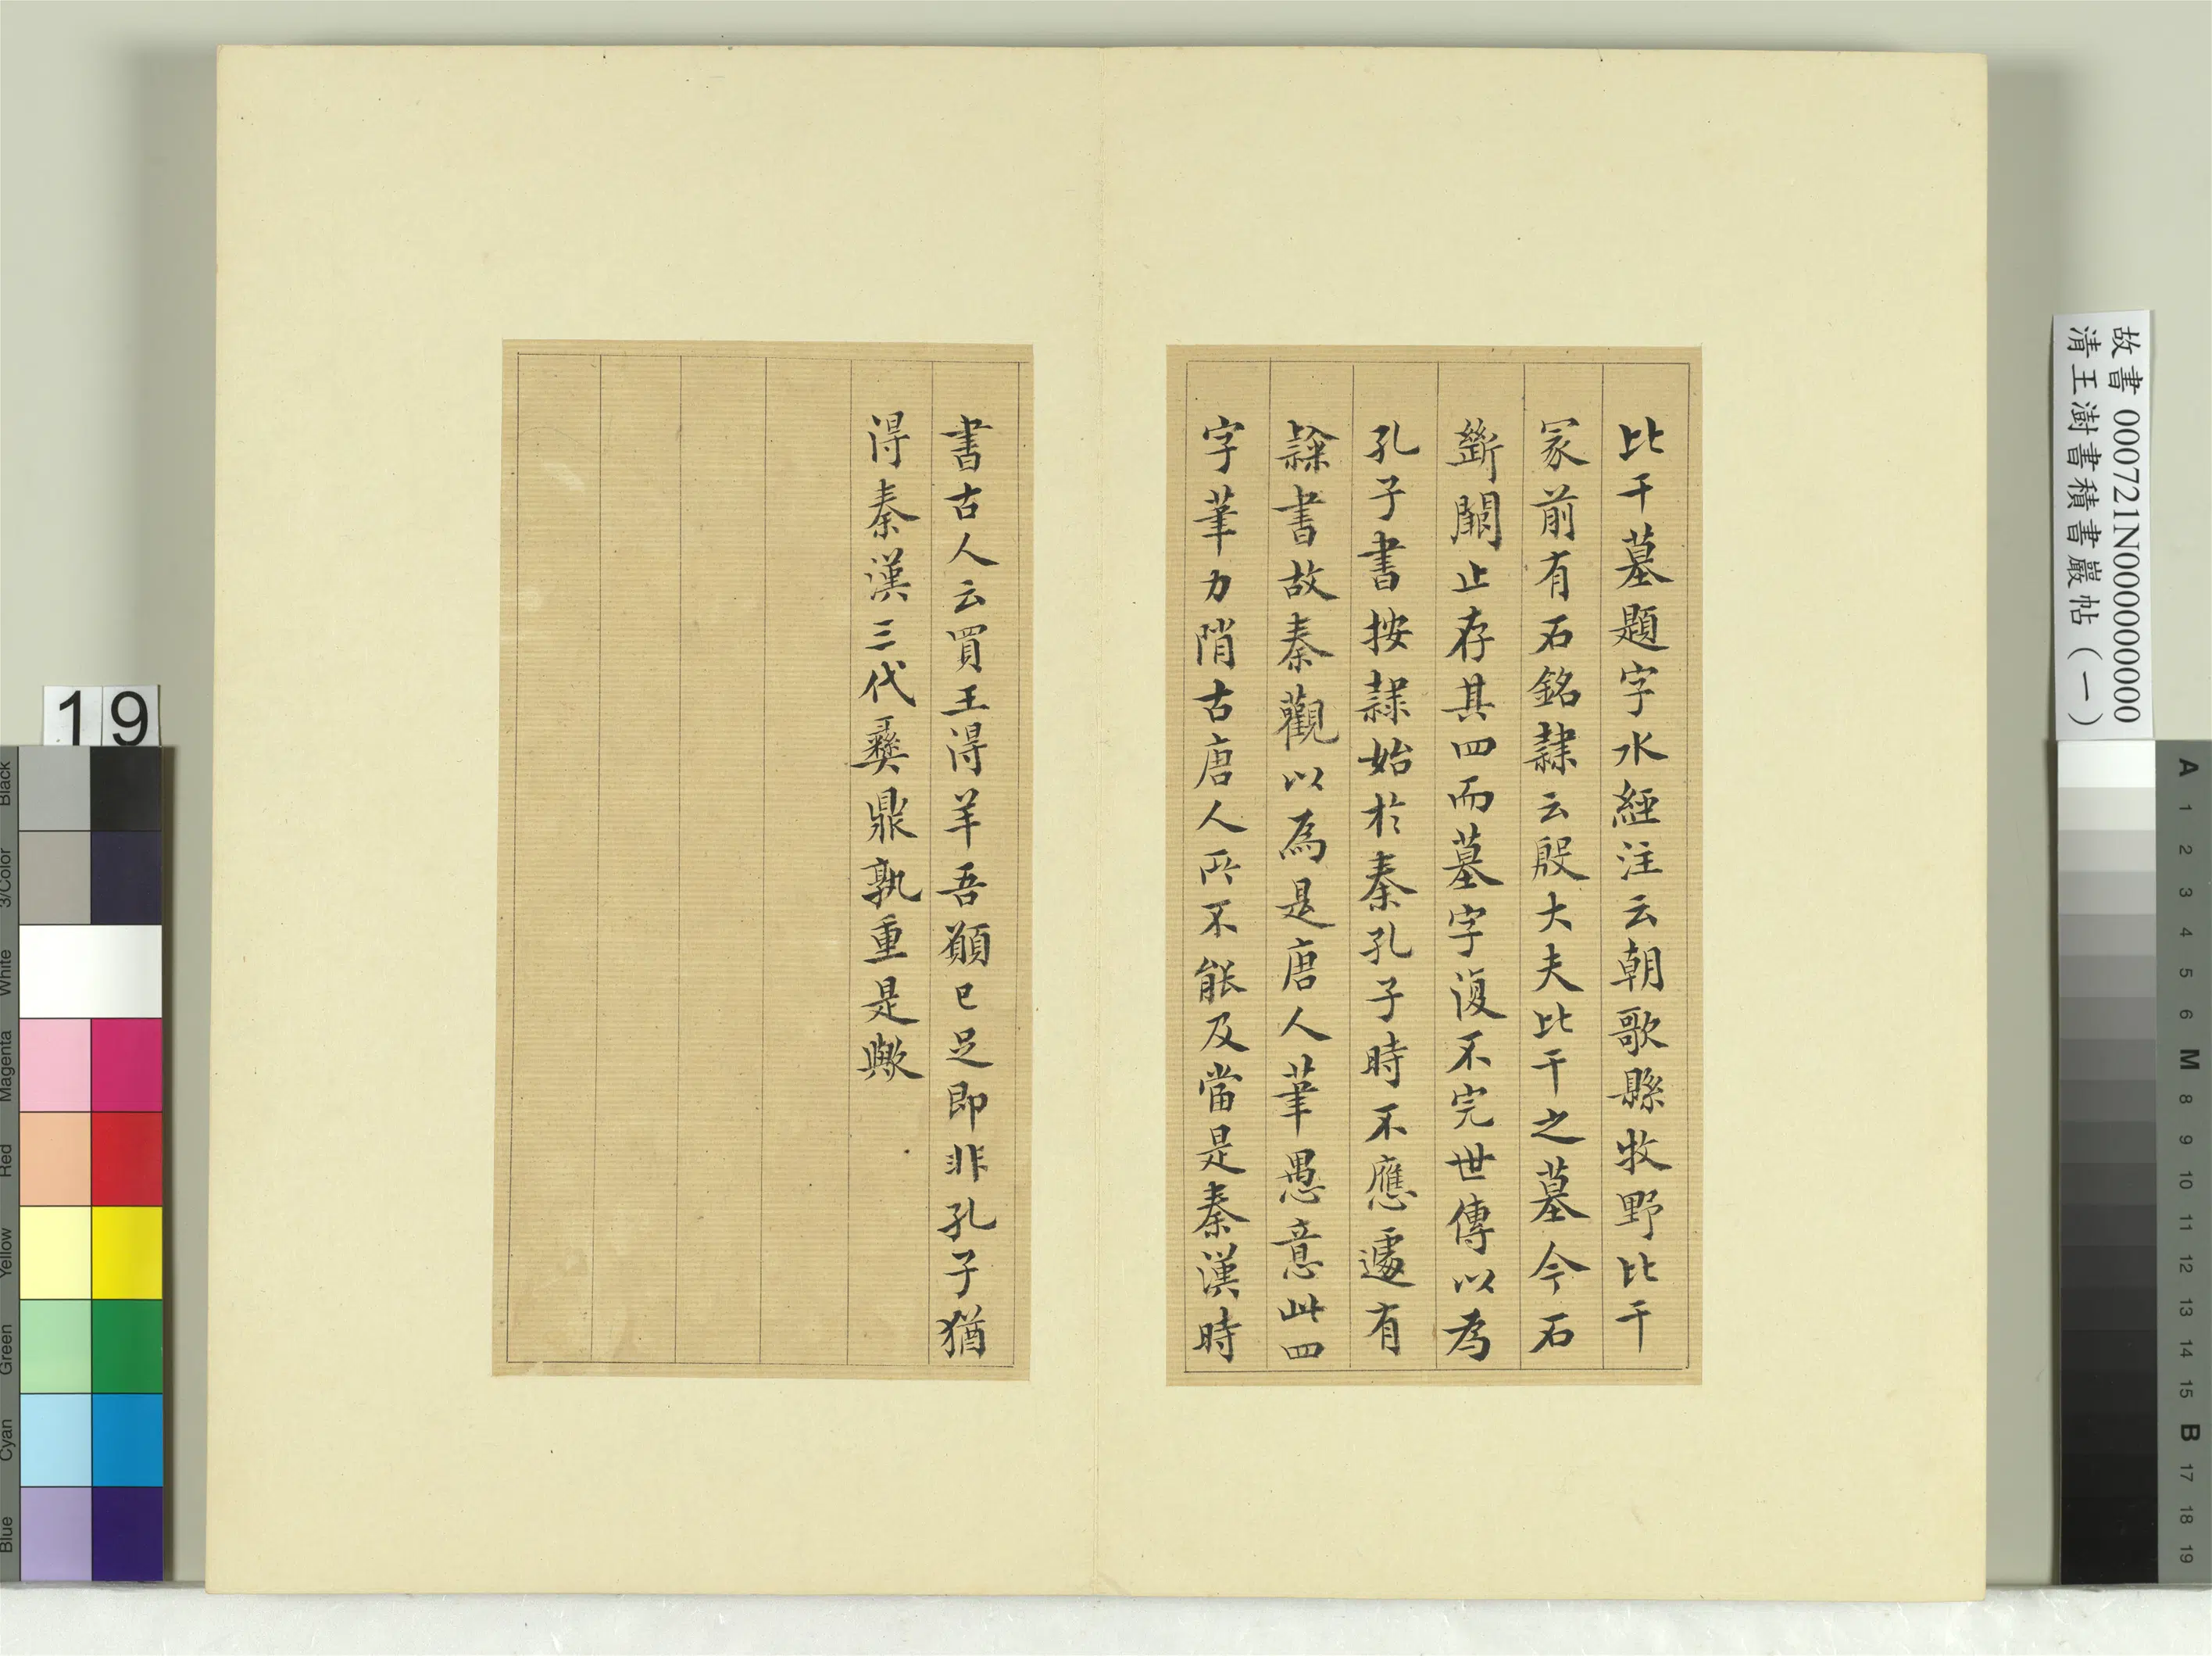 比干墓題字水經注云朝歌縣牧野比干
冢前有石銘隸云殷大夫比干之墓今石
斷闕止存其四而墓字復不完世傳以為
孔子書按隸始於秦孔子時不應遽有
隸書故秦觀以為是唐人筆愚意此四
字筆力陗古唐人所不能及當是秦漢時
書古人云買王得羊吾願已足即非孔子猶
得秦漢三代彝鼎孰重是歟
故書 000721N000000000
清王澍書積書巖帖（一）
19
Black
3/Color
White
Magenta
Red
Yellow
Green
Cyan
Blue
A
1
2
3
4
5
6
M
8
9
10
11
12
13
14
15
B
17
18
19